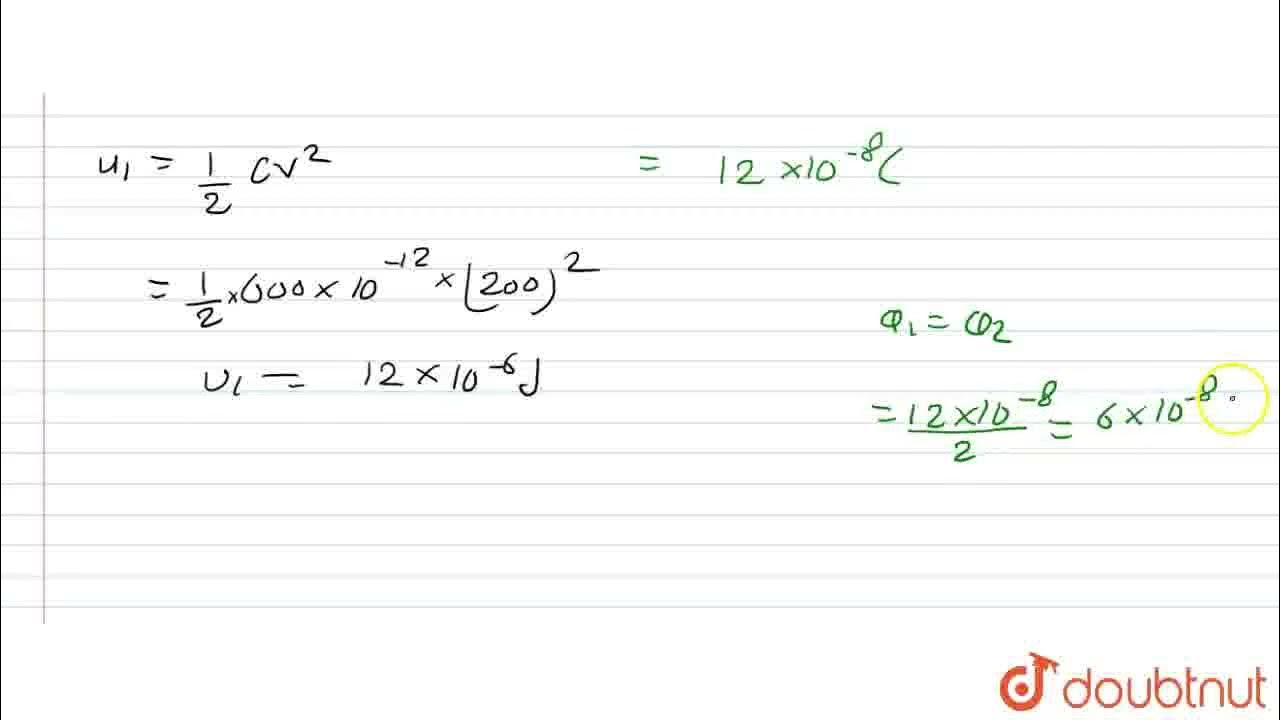 u₁ = 1/2 CV²
= 1/2 × 600 × 10⁻¹² × (200)²
U₁ = 12 × 10⁻⁶ J
= 12 × 10⁻⁸ C
Q₁ = Q₂
= 12 × 10⁻⁸ / 2 = 6 × 10⁻⁸
doubtnut